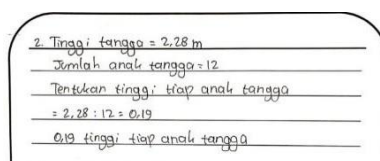 2. Tinggi tangga = 2,28 m
Jumlah anak tangga = 12
Tentukan tinggi tiap anak tangga
= 2,28 : 12 = 0,19
0,19 tinggi tiap anak tangga